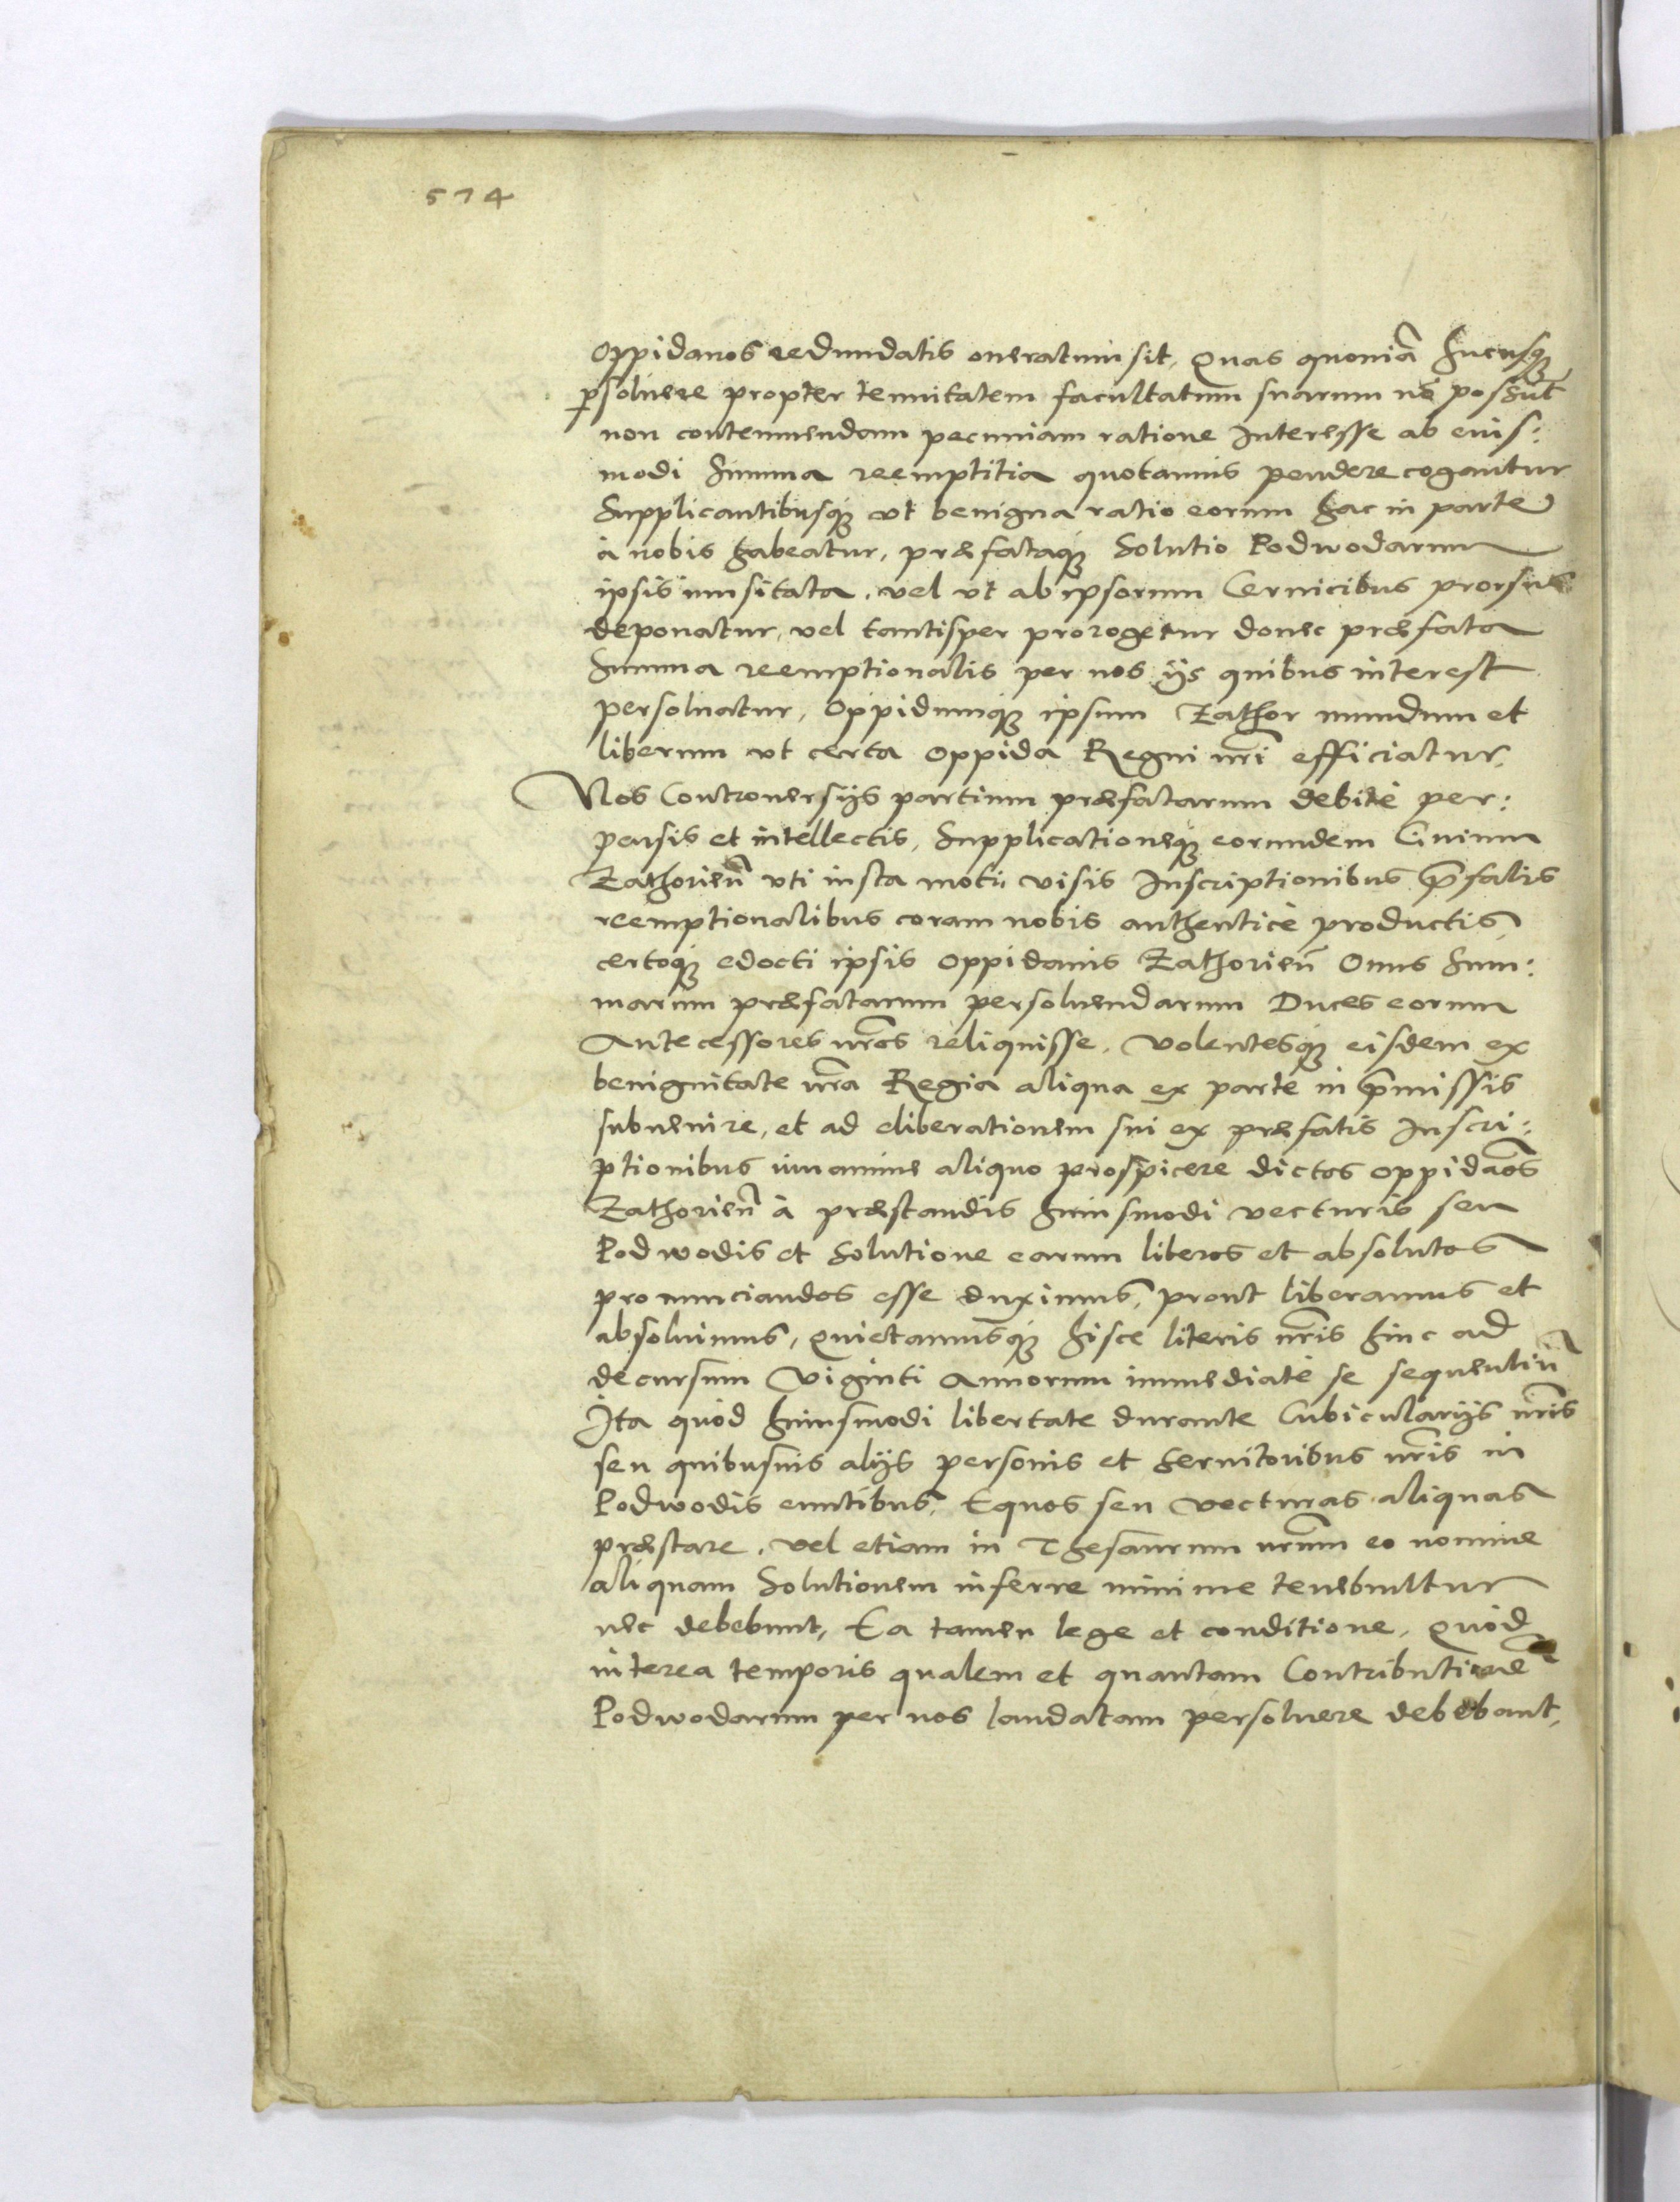 574
oppidanos redundatis oneratum sit, Quas quoniā hucusq́ꝫ
ꝑsoluere propter tenuitatem facultatum suarum nō possūt
non contemnendam pecuniam ratione Interesse ab eius:
modi Summa reemptitia quotannis pendere cogantur
Supplicantibusq́ꝫ vt benigna ratio eorum hac in parte
à nobis habeatur, præfataq́ꝫ Solutio Podwodarum
ipsis inusitata, vel vt ab ipsorum Ceruicibus prorsus
deponatur, vel tantisper prorogetur donec præfata
Summa reemptionalis per nos ijs quibus interest
persoluatur, Oppidumq́ꝫ ipsum Zathor mundum et
liberum vt certa oppida Regni nr̃i efficiatur,
Nos Controuersijs partium præfatarum debitè per:
pensis et intellectis, Supplicationeq́ꝫ eorundem Ciuium
Zathorien̄ vti iusta moti, visis Inscriptionibus p̄fatis
reemptionalibus coram nobis authenticè productis,
certoq́ꝫ edocti ipsis oppidanis Zathorien̄ Onus Sum:
marum præfatarum persoluendarum Duces eorum
Antecessores nr̃os reliquisse, Volentesq́ꝫ eisdem ex
benignitate nr̃a Regia aliqua ex parte in p̄missis
subuenire, et ad eliberationem sui ex præfatis Inscri:
ptionibus iuuamine aliquo prospicere dictos oppidāos
Zathorien̄ à præstandis huiusmodi vecturis seu
Podwodis et Solutione earum liberos et absolutos
pronunciandos esse duximus, prout liberamus et
absoluimus, Quietamusq́ꝫ hisce literis nr̃is hinc ad
decursum Viginti Annorum immediatè se sequentiū
Ita quòd huiusmodi libertate durante Cubicularijs nr̃is
seu quibusuis alijs personis et Seruitoribus nr̃is in
Podwodis euntibus, Equos seu vecturas aliquas
præstare, vel etiam in Thesaurum nr̃um eo nomine
aliquam Solutionem inferre minime tenebuntur
nec debebunt, Ea tamen lege et conditione, Quòd
interea temporis qualem et quantam Contributionē
Podwodarum per nos laudatam persoluere debebant,